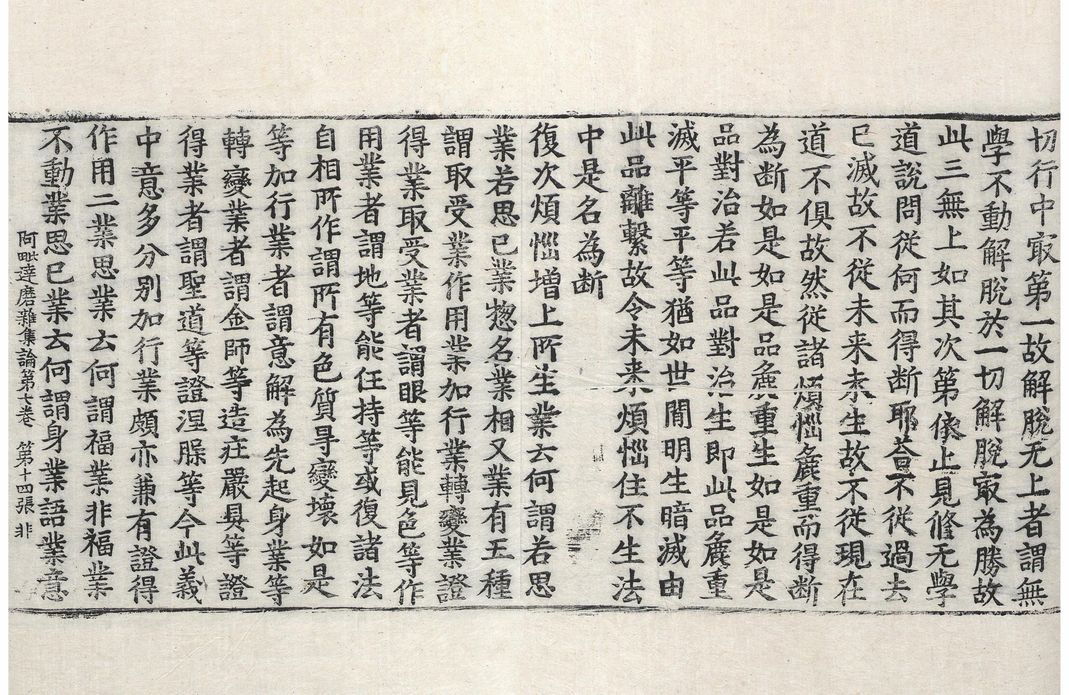 切行中㝡第一故解脫无上者謂無
學不動解脫於一切解脫㝡為勝故
此三無上如其次第依止見修无學
道說問從何而得断耶荅不從過去
已滅故不從未来未生故不從現在
道不俱故然從諸煩惱麁重而得断
為断如是如是品麁重生如是如是
品對治若此品對治生即此品麁重
滅平等平等猶如世閒明生暗滅由
此品離繫故令未来煩惱住不生法
中是名為断
復次煩惱增上所生業云何謂若思
業若思已業惣名業相又業有五種
謂取受業作用業加行業轉變業證
得業取受業者謂眼等能見色等作
用業者謂地等能任持等或復諸法
自相所作謂所有色質㝵變壞如是
等加行業者謂意解為先起身業等
轉變業者謂金師等造庄嚴具等證
得業者謂聖道等證涅槃等今此義
中意多分別加行業頗亦兼有證得
作用二業思業云何謂福業非福業
不動業思已業云何謂身業語業意
阿毗達磨雜集論第七卷 第十四張 非